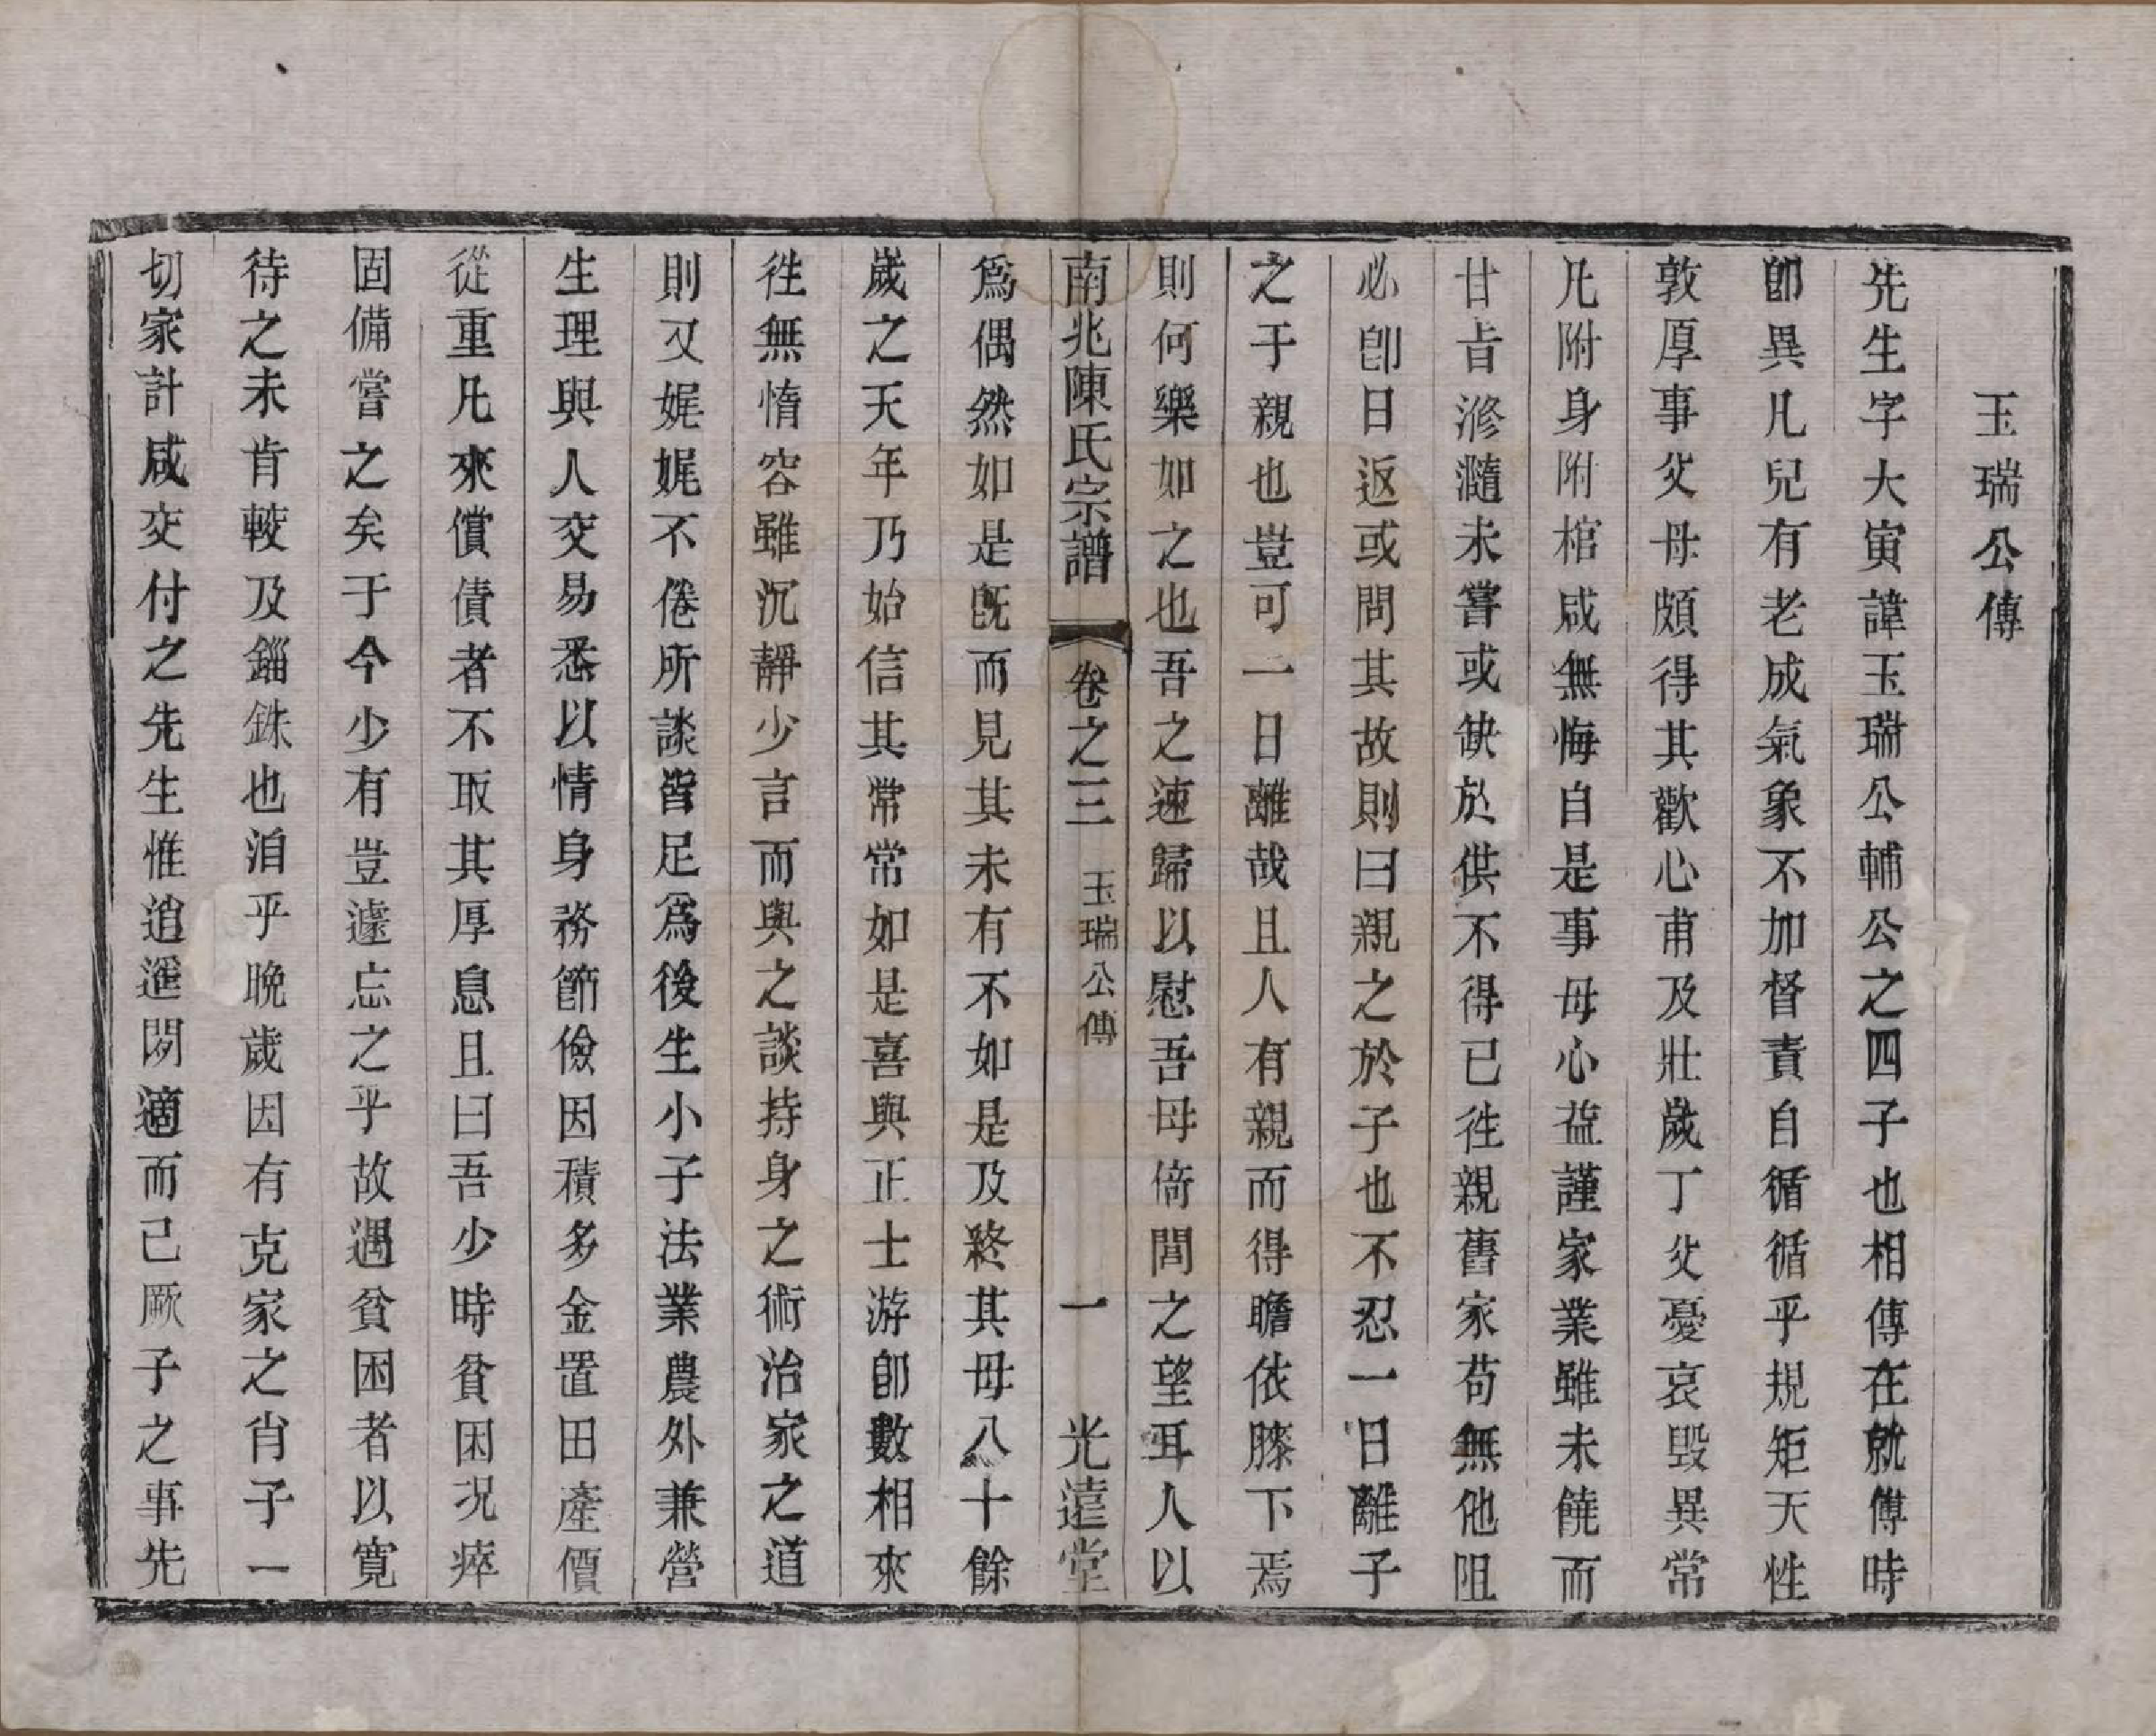 玉瑞公傳
先生字大寅諱玉瑞公輔公之四子也相傳在就傅時
卽異凡兒有老成氣象不加督責自循循乎規矩天性
敦厚事父母頗得其歡心甫及壯歲丁父憂哀毀異常
凡附身附棺咸無悔自是事母心益謹家業雖未饒而
甘旨滫瀡未嘗或缺於供不得已徃親舊家苟無他阻
必卽日返或問其故則曰親之於子也不忍一日離子
之于親也豈可一日離哉且人有親而得瞻依膝下焉
則何樂如之也吾之速歸以慰吾母倚閭之望耳人以
南兆陳氏宗譜 卷之三 玉瑞公傳 一 光遠堂
爲偶然如是旣而見其未有不如是及終其母八十餘
歲之天年乃始信其常常如是喜與正士游卽數相來
徃無惰容雖沉靜少言而與之談持身之術治家之道
則又娓娓不倦所談皆足爲後生小子法業農外兼營
生理與人交易悉以情身務節儉因積多金置田產價
從重凡來償債者不取其厚息且曰吾少時貧困况瘁
固備嘗之矣于今少有豈遽忘之乎故遇貧困者以寬
待之未肯較及錙銖也洎乎晚歲因有克家之肖子一
切家計咸交付之先生惟逍遥閑適而已厥子之事先